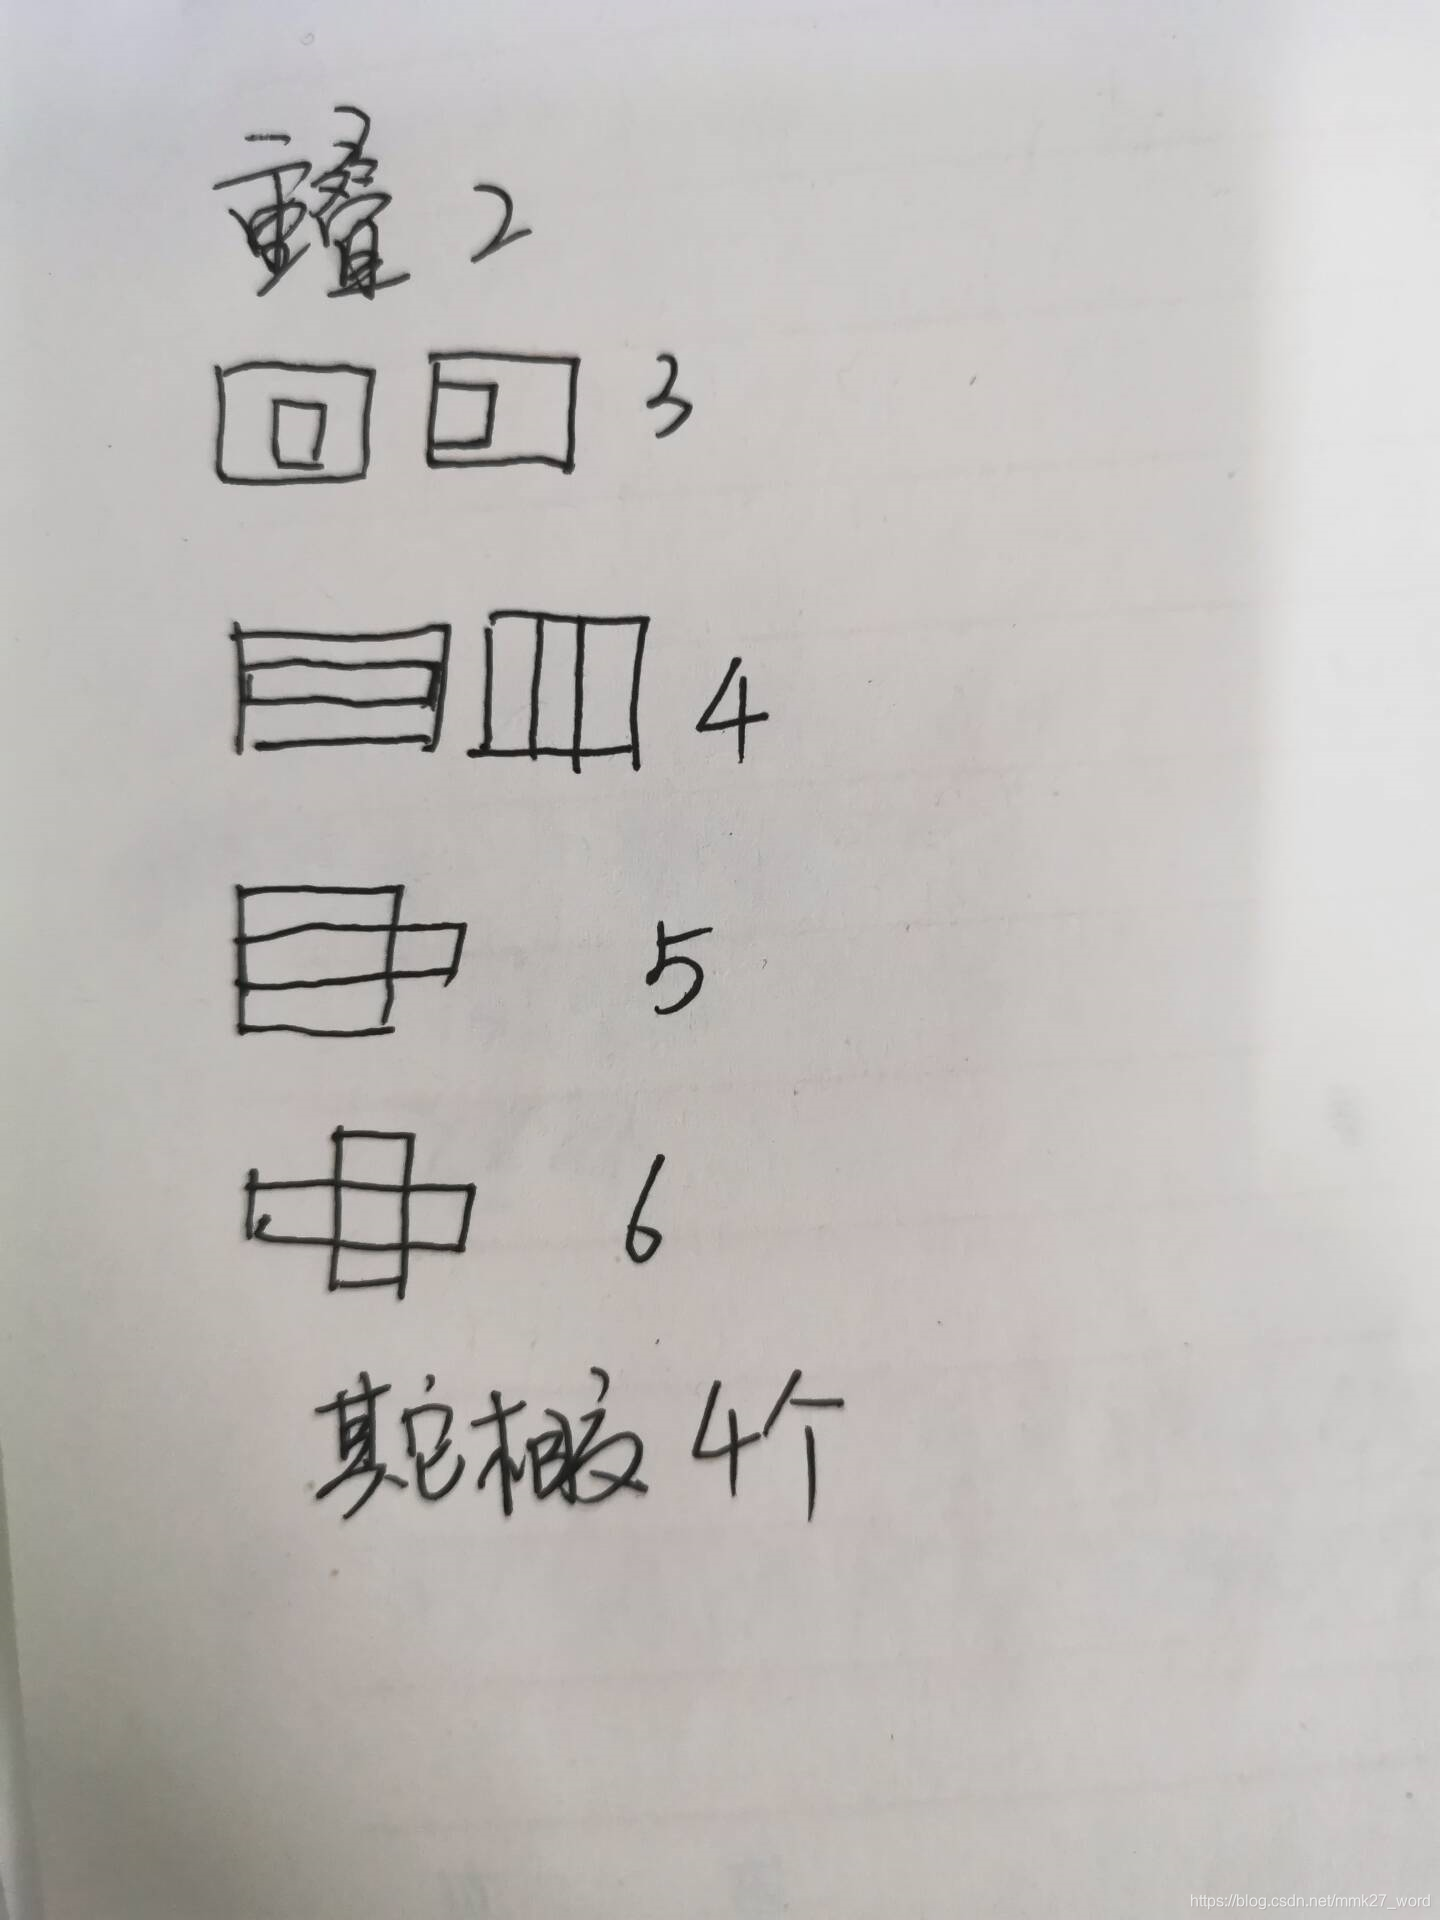 重叠 2
3
4
5
6
其它相交 4个
https://blog.csdn.net/mmk27_word